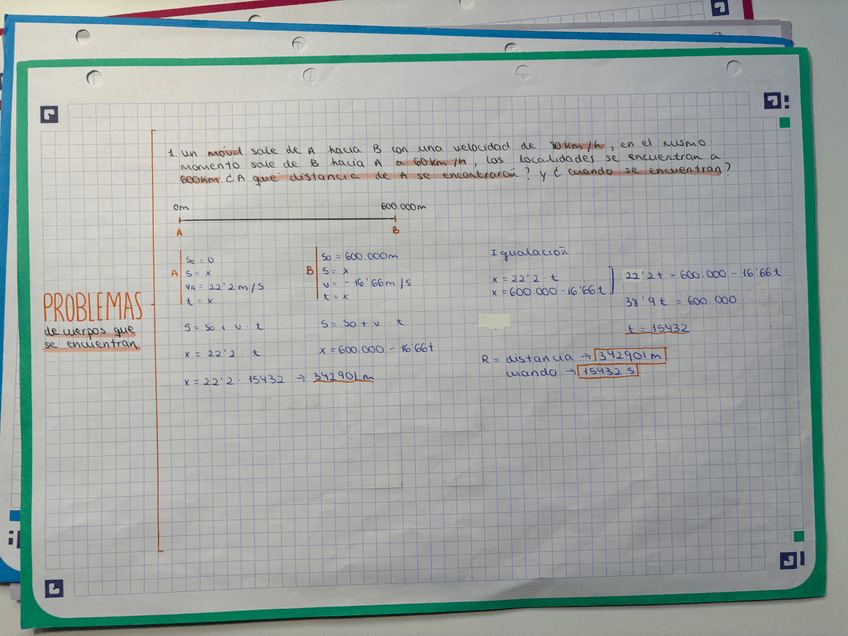 1. Un móvil sale de A hacia B con una velocidad de 80km/h, en el mismo
momento sale de B hacia A a 60km/h, las localidades se encuentran a
600km. ¿A que distancia de A se encontraran? y ¿cuando se encuentran?
0m 600.000m
A B
A
So = 0
S = x
VA = 22'2 m/s
t = x
B
So = 600.000m
S = x
V = -16'66m/s
t = x
Igualación
x = 22'2 · t
x = 600.000 - 16'66t
22'2t = 600.000 - 16'66t
38'9t = 600.000
t = 15432
PROBLEMAS
de cuerpos que
se encuentran
S = So + v · t
x = 22'2 · t
x = 22'2 · 15432 → 342901m
S = So + v · t
x = 600.000 - 16'66t
R = distancia → 342901 m
cuando → 15432 s